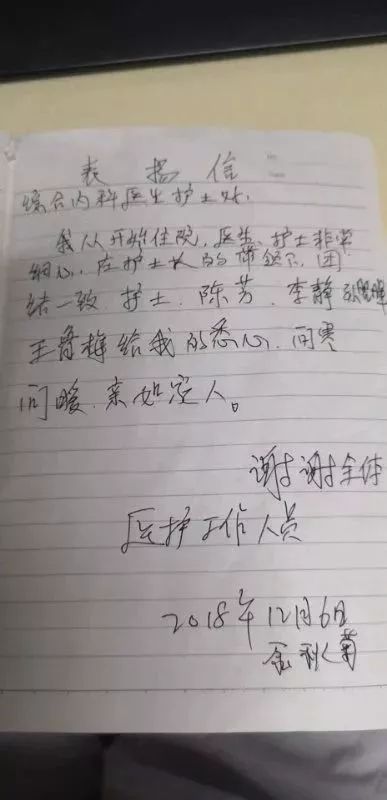 表扬信
综合内科医生护士处.
我从开始住院,医生、护士非常
细心,在护士长的带领下,团
结一致.护士.陈芳.李静
王雪梅给我的悉心.问寒
问暖.亲如家人。
谢谢全体
医护工作人员
2018年12月6日
金秋菊